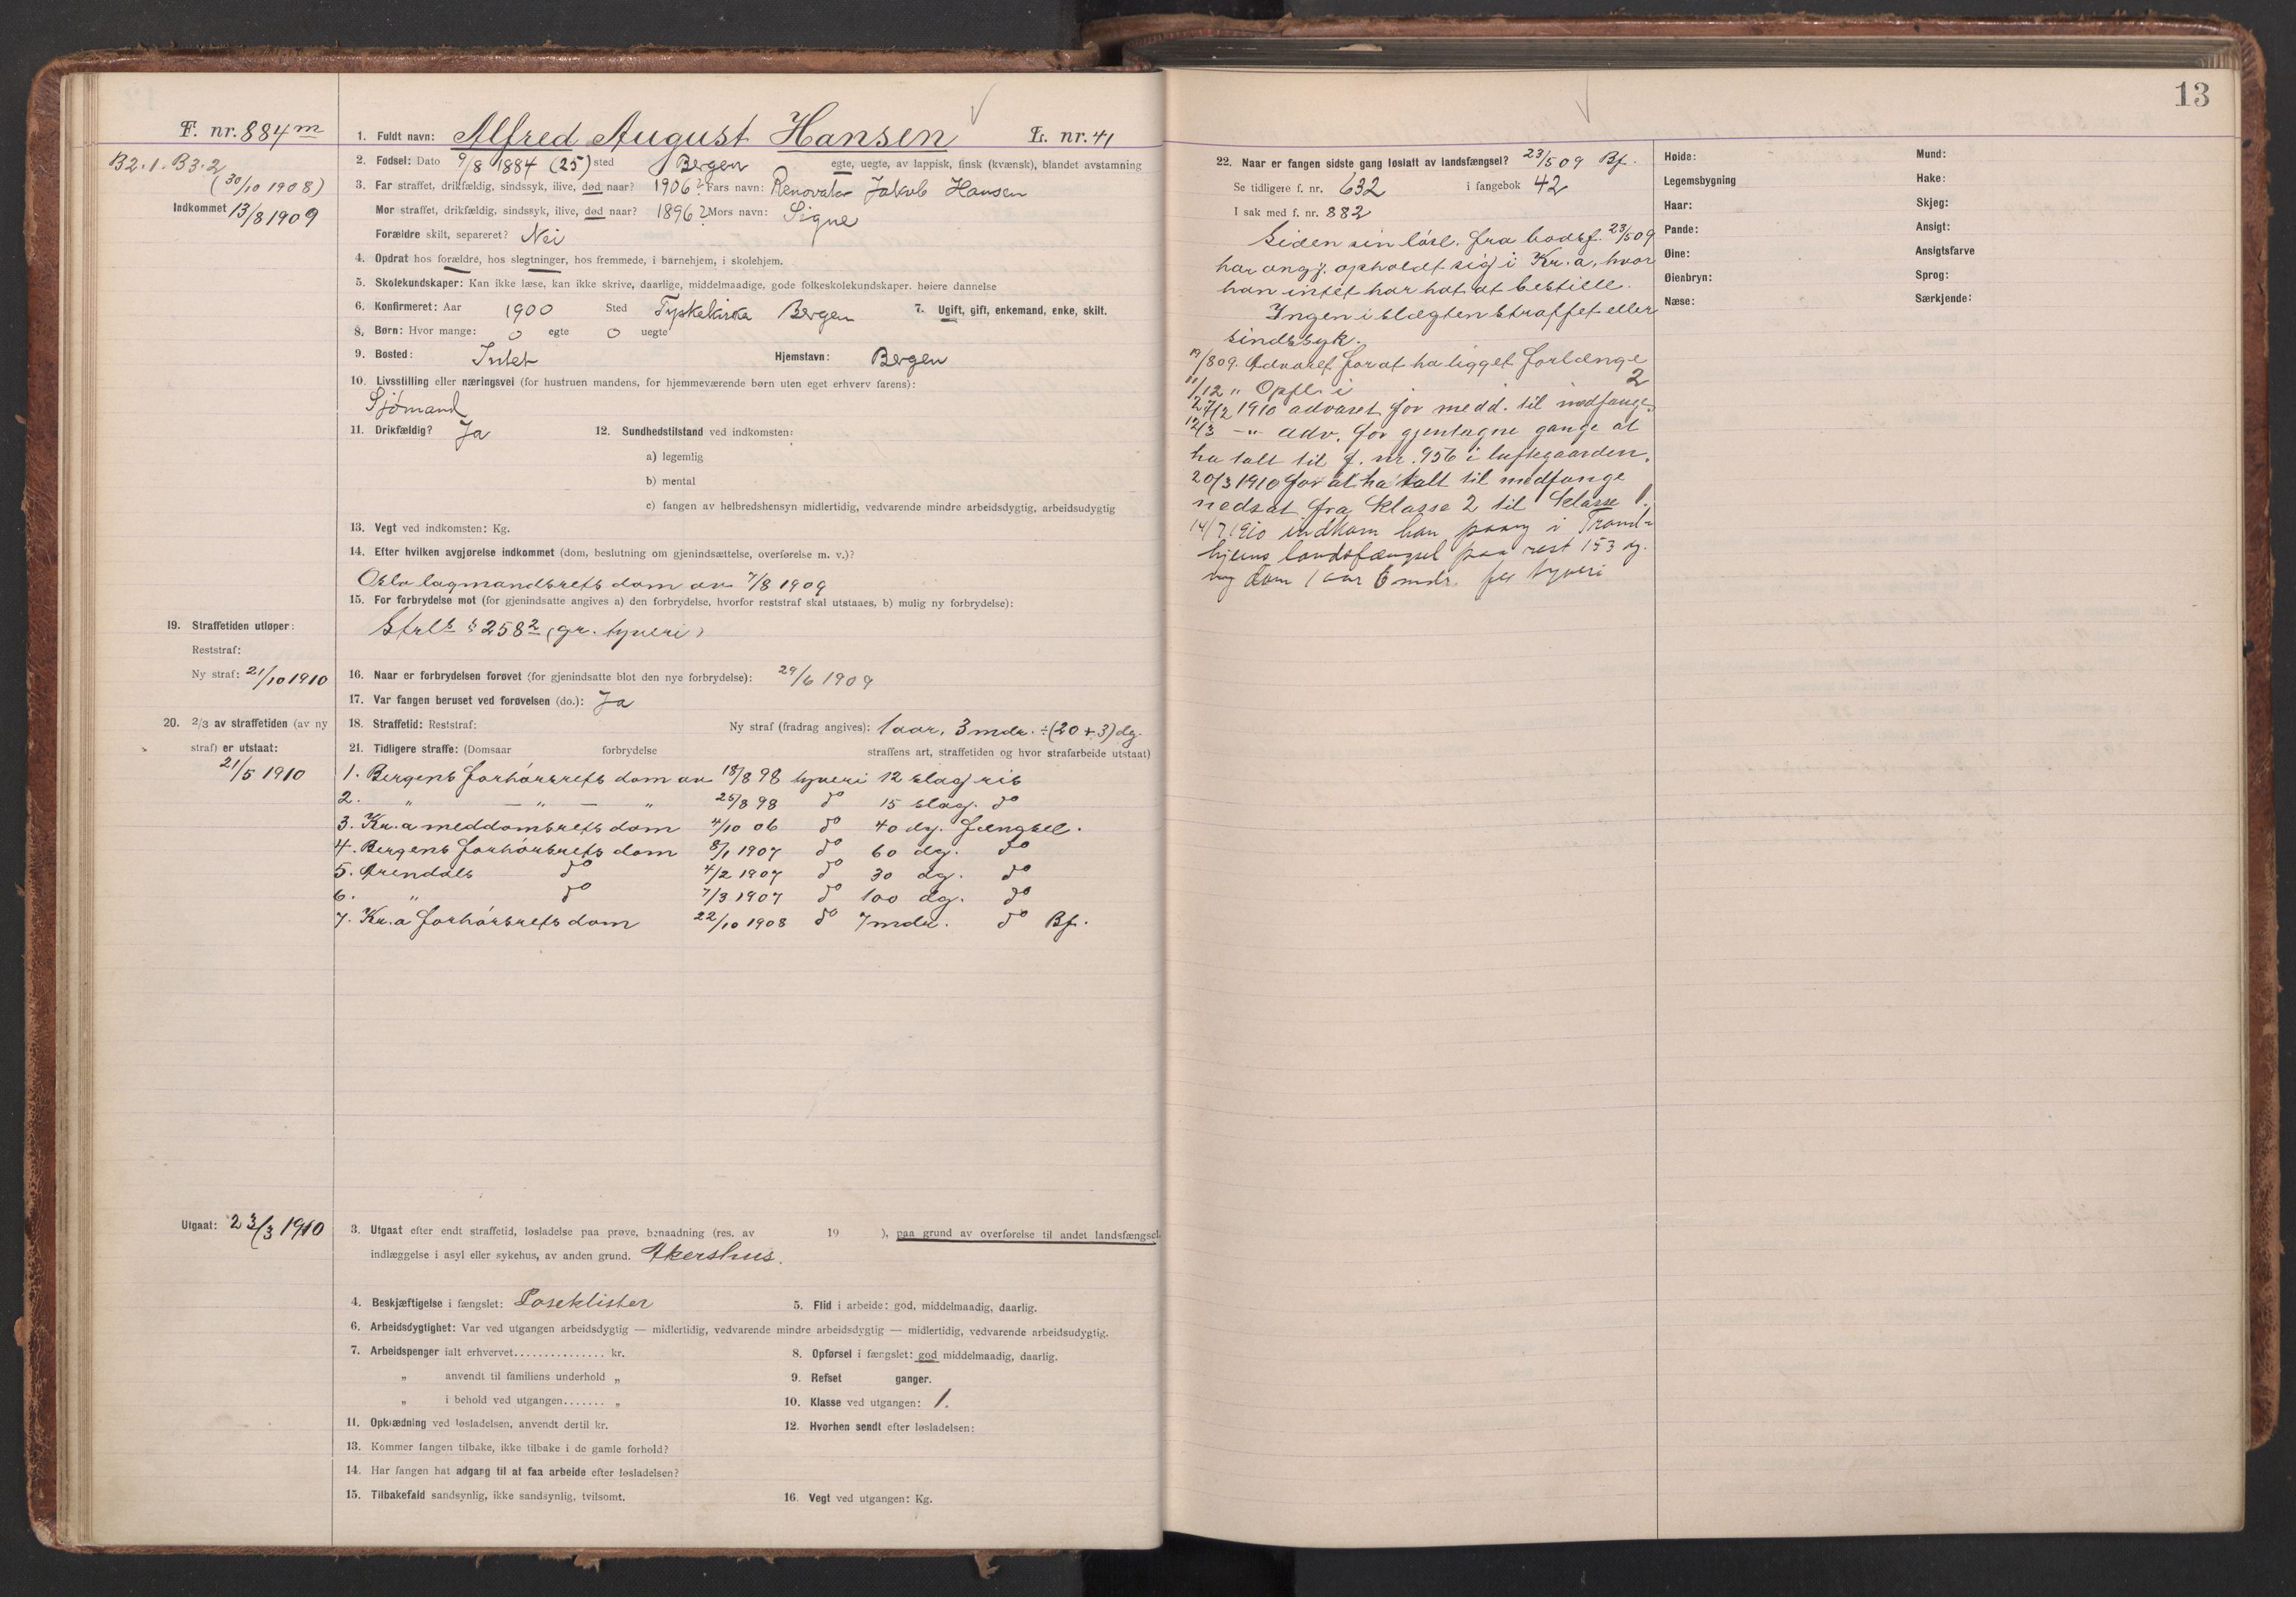 13
F. nr. 884 m
1. Fuldt navn: Alfred August Hansen L. nr. 41
B2.1. B3.2
(30/10 1908)
Indkommet 13/8 1909
2. Fødsel: Dato 9/8 1884 (25) sted Bergen egte, uegte, av lappisk, finsk (kvænsk), blandet avstamning
3. Far straffet, drikfældig, sindssyk, ilive, død naar? 1906? Fars navn: Renovatør Jakob Hansen
Mor straffet, drikfældig, sindssyk, ilive, død naar? 1896? Mors navn: Signe
Forældre skilt, separeret? Nei
4. Opdrat hos forældre, hos slegtninger, hos fremmede, i barnehjem, i skolehjem.
5. Skolekundskaper: Kan ikke læse, kan ikke skrive, daarlige, middelmaadige, gode folkeskolekundskaper. høiere dannelse
6. Konfirmeret: Aar 1900 Sted Tyskekirke Bergen 7. Ugift, gift, enkemand, enke, skilt.
8. Børn: Hvor mange: 0 egte 0 uegte
9. Bosted: Intet Hjemstavn: Bergen
10. Livsstilling eller næringsvei (for hustruen mandens, for hjemmeværende børn uten eget erhverv farens):
Sjømand
11. Drikfældig? Ja 12. Sundhedstilstand ved indkomsten:
a) legemlig
b) mental
c) fangen av helbredshensyn midlertidig, vedvarende mindre arbeidsdygtig, arbeidsudygtig
13. Vegt ved indkomsten: Kg.
14. Efter hvilken avgjørelse indkommet (dom, beslutning om gjenindsættelse, overførelse m. v.)?
Oslo lagmandsrets dom av 7/8 1909
15. For forbrydelse mot (for gjenindsatte angives a) den forbrydelse, hvorfor reststraf skal utstaaes, b) mulig ny forbrydelse):
Strl's § 258 2 (gr. tyveri)
19. Straffetiden utløper:
Reststraf:
Ny straf: 21/10 1910
16. Naar er forbrydelsen forøvet (for gjenindsatte blot den nye forbrydelse): 29/6 1909
17. Var fangen beruset ved forøvelsen (do.): Ja
20. 2/3 av straffetiden (av ny
straf) er utstaat:
21/5 1910
18. Straffetid: Reststraf: Ny straf (fradrag angives): 1 aar, 3 mdr. ÷ (20 + 3) dg.
21. Tidligere straffe: (Domsaar forbrydelse straffens art, straffetiden og hvor strafarbeide utstaat)
1. Bergens forhørsrets dom av 18/8 98 tyveri 12 slag ris
2. " — " — " 25/8 98 do 15 slag. do
3. Kr.a meddomsrets dom 4/10 06 do 40 dg. fængsel.
4. Bergens forhørsrets dom 8/1 1907 do 60 dg. do
5. Arendals do 4/2 1907 do 30 dg. do
6. " do 7/3 1907 do 100 dg. do
7. Kr.a forhørsrets dom 22/10 1908 do 7 mdr. do Bf.
Utgaat: 23/3 1910
3. Utgaat efter endt straffetid, løsladelse paa prøve, benaadning (res. av 19 ), paa grund av overførelse til andet landsfængsel
indlæggelse i asyl eller sykehus, av anden grund. Akershus.
4. Beskjæftigelse i fængslet: Poseklister 5. Flid i arbeide: god, middelmaadig, daarlig.
6. Arbeidsdygtighet: Var ved utgangen arbeidsdygtig — midlertidig, vedvarende mindre arbeidsdygtig — midlertidig, vedvarende arbeidsudygtig.
7. Arbeidspenger ialt erhvervet............... kr. 8. Opførsel i fængslet: god middelmaadig, daarlig.
" anvendt til familiens underhold " 9. Refset ganger.
" i behold ved utgangen....... " 10. Klasse ved utgangen: 1.
11. Opklædning ved løsladelsen, anvendt dertil kr. 12. Hvorhen sendt efter løsladelsen:
13. Kommer fangen tilbake, ikke tilbake i de gamle forhold?
14. Har fangen hat adgang til at faa arbeide efter løsladelsen?
15. Tilbakefald sandsynlig, ikke sandsynlig, tvilsomt. 16. Vegt ved utgangen: Kg.
22. Naar er fangen sidste gang løslatt av landsfængsel? 23/5 09 Bf.
Se tidligere f. nr. 632 i fangebok 42
I sak med f. nr. 882
Siden sin løsl. fra bodsf. 23/5 09
har angj. opholdt sig i Kr.a, hvor
han intet har hat at bestille.
Ingen i slægten straffet eller
sindssyk.
19/8 09. Advaret for at ha ligget forlænge
11/12 " Opfl. i 2
27/2 1910 advaret for medd. til medfange.
12/3 —"— adv. for gjentagne gange at
ha talt til f. nr. 956 i luftegaarden.
20/3 1910 for at ha talt til medfange
nedsat fra klasse 2 til klasse 1.
14/7 1910 indkom han paany i Trond-
hjems landsfængsel paa rest 153 dg.
og dom 1 aar 6 mdr. for tyveri
Høide: Mund:
Legemsbygning Hake:
Haar: Skjeg:
Pande: Ansigt:
Øine: Ansigtsfarve
Øienbryn: Sprog:
Næse: Særkjende: